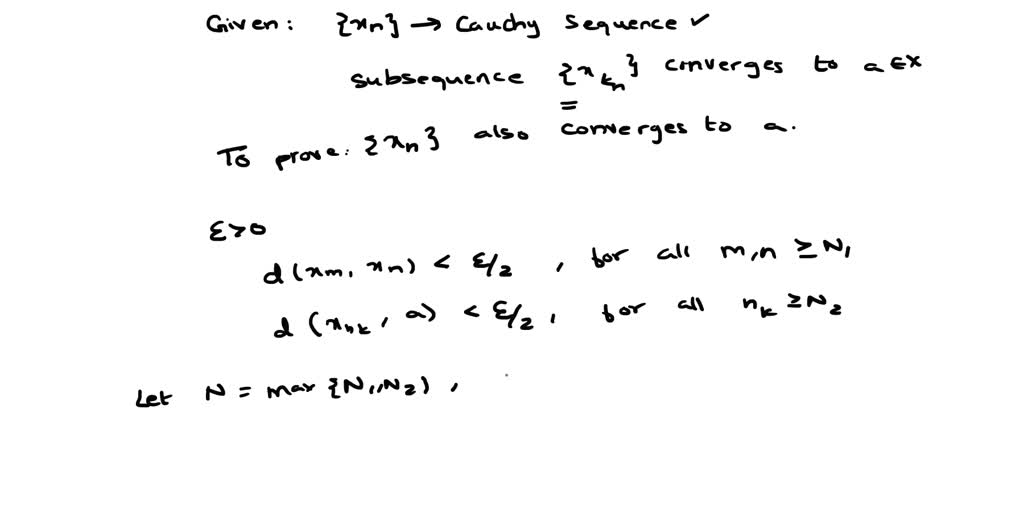 Given: {xn} → Cauchy Sequence ✓
subsequence {x kn} converges to a ∈ X
=
To prove: {xn} also converges to a.
ε>0
d(xm, xn) < ε/2 , for all m,n ≥ N1
d (xnk, a) < ε/2, for all nk ≥ N2
Let N = max {N1,N2) ,